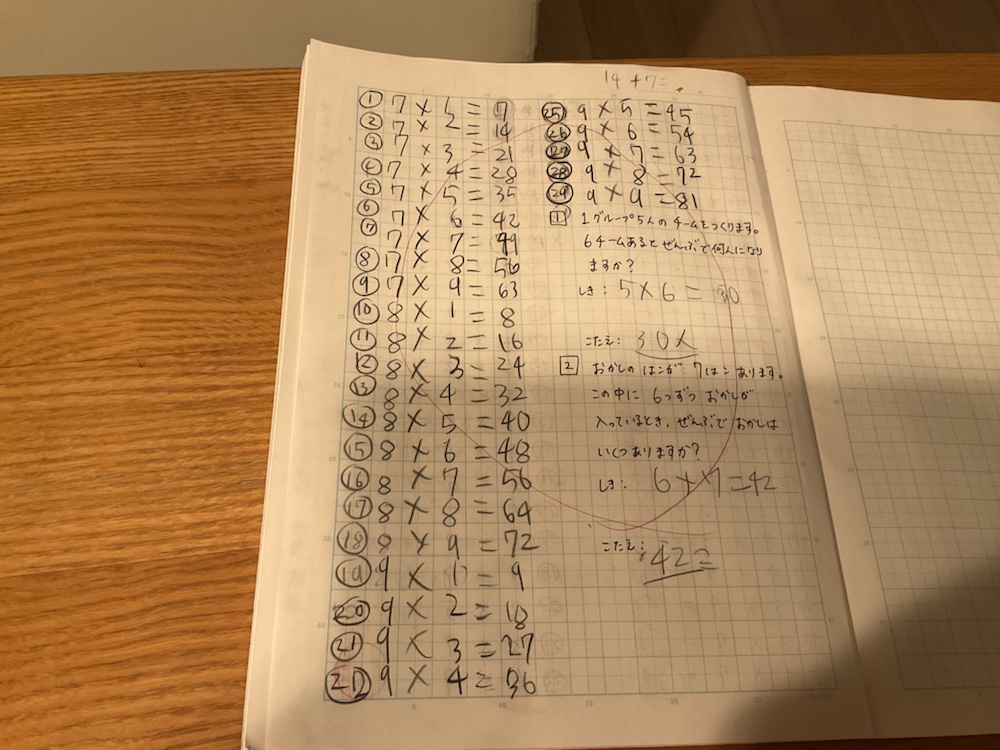 14+7=
① 7×1=7
② 7×2=14
③ 7×3=21
④ 7×4=28
⑤ 7×5=35
⑥ 7×6=42
⑦ 7×7=49
⑧ 7×8=56
⑨ 7×9=63
⑩ 8×1=8
⑪ 8×2=16
⑫ 8×3=24
⑬ 8×4=32
⑭ 8×5=40
⑮ 8×6=48
⑯ 8×7=56
⑰ 8×8=64
⑱ 8×9=72
⑲ 9×1=9
⑳ 9×2=18
㉑ 9×3=27
9×4=36
㉕ 9×5=45
㉖ 9×6=54
㉗ 9×7=63
㉘ 9×8=72
㉙ 9×9=81
1 1グループ5人のチームをつくります。
6チームあるとぜんぶで何人になり
ますか?
しき: 5×6=30
こたえ: 30人
2 おかしのはこが7はこあります。
この中に6つずつおかしが
入っているとき、ぜんぶでおかしは
いくつありますか?
しき: 6×7=42
こたえ: 42こ